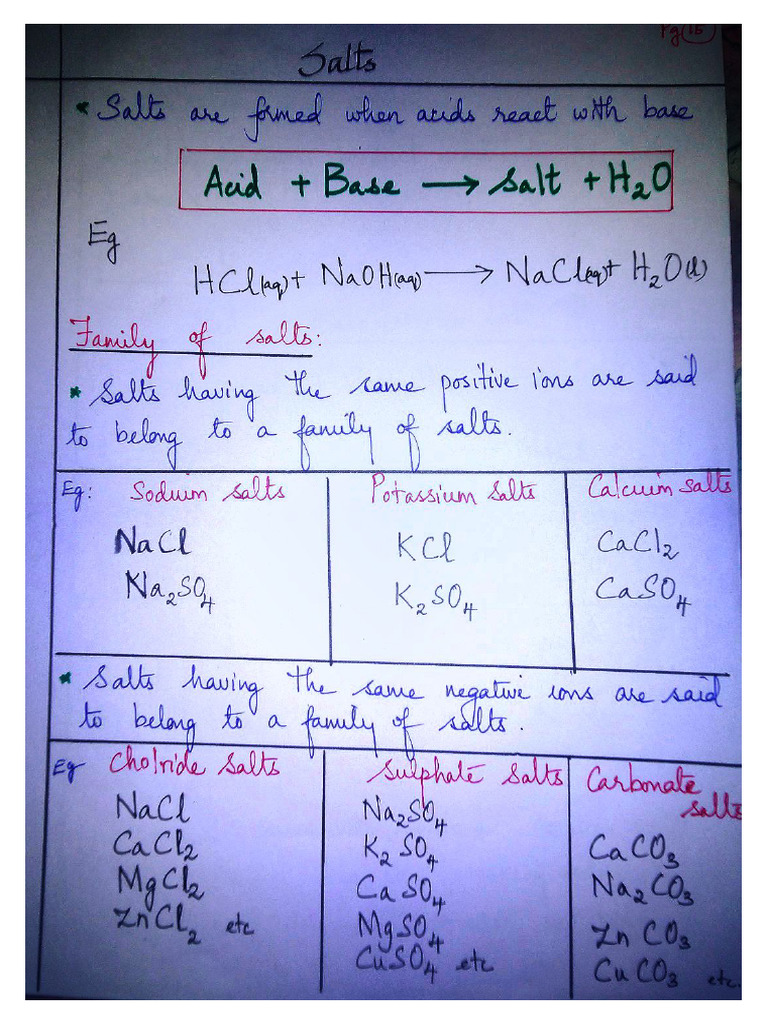 Pg (15)
Salts
* Salts are formed when acids react with base
Acid + Base → Salt + H₂O
Eg
HCl(aq) + NaOH(aq) → NaCl(aq) + H₂O(l)
Family of salts:
* Salts having the same positive ions are said
to belong to a family of salts.
Eg: Sodium salts Potassium salts Calcium salts
NaCl KCl CaCl₂
Na₂SO₄ K₂SO₄ CaSO₄
* Salts having the same negative ions are said
to belong to a family of salts.
Eg Cholride salts Sulphate salts Carbonate
salts
NaCl Na₂SO₄
CaCl₂ K₂SO₄ CaCO₃
MgCl₂ CaSO₄ Na₂CO₃
ZnCl₂ etc MgSO₄ ZnCO₃
CuSO₄ etc CuCO₃ etc.